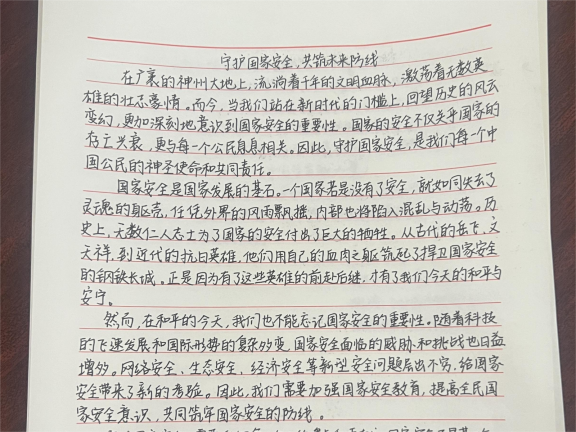 守护国家安全，共筑未来防线
在广袤的神州大地上，流淌着千年的文明血脉，激荡着无数英
雄的壮志豪情。而今，当我们站在新时代的门槛上，回望历史的风云
变幻，更加深刻地意识到国家安全的重要性。国家的安全不仅关乎国家的
存亡兴衰，更与每一个公民息息相关。因此，守护国家安全，是我们每一个中
国公民的神圣使命和共同责任。
国家安全是国家发展的基石。一个国家若是没有了安全，就如同失去了
灵魂的躯壳，任凭外界的风雨飘摇，内部也将陷入混乱与动荡。历
史上，无数仁人志士为了国家的安全付出了巨大的牺牲。从古代的岳飞、文
天祥，到近代的抗日英雄，他们用自己的血肉之躯筑起了捍卫国家安全
的钢铁长城。正是因为有了这些英雄的前赴后继，才有了我们今天的和平与
安宁。
然而，在和平的今天，我们也不能忘记国家安全的重要性。随着科技
的飞速发展和国际形势的复杂多变，国家安全面临的威胁和挑战也日益
增多。网络安全、生态安全、经济安全等新型安全问题层出不穷，给国家
安全带来了新的考验。因此，我们需要加强国家安全教育，提高全民国
家安全意识，共同筑牢国家安全的防线。